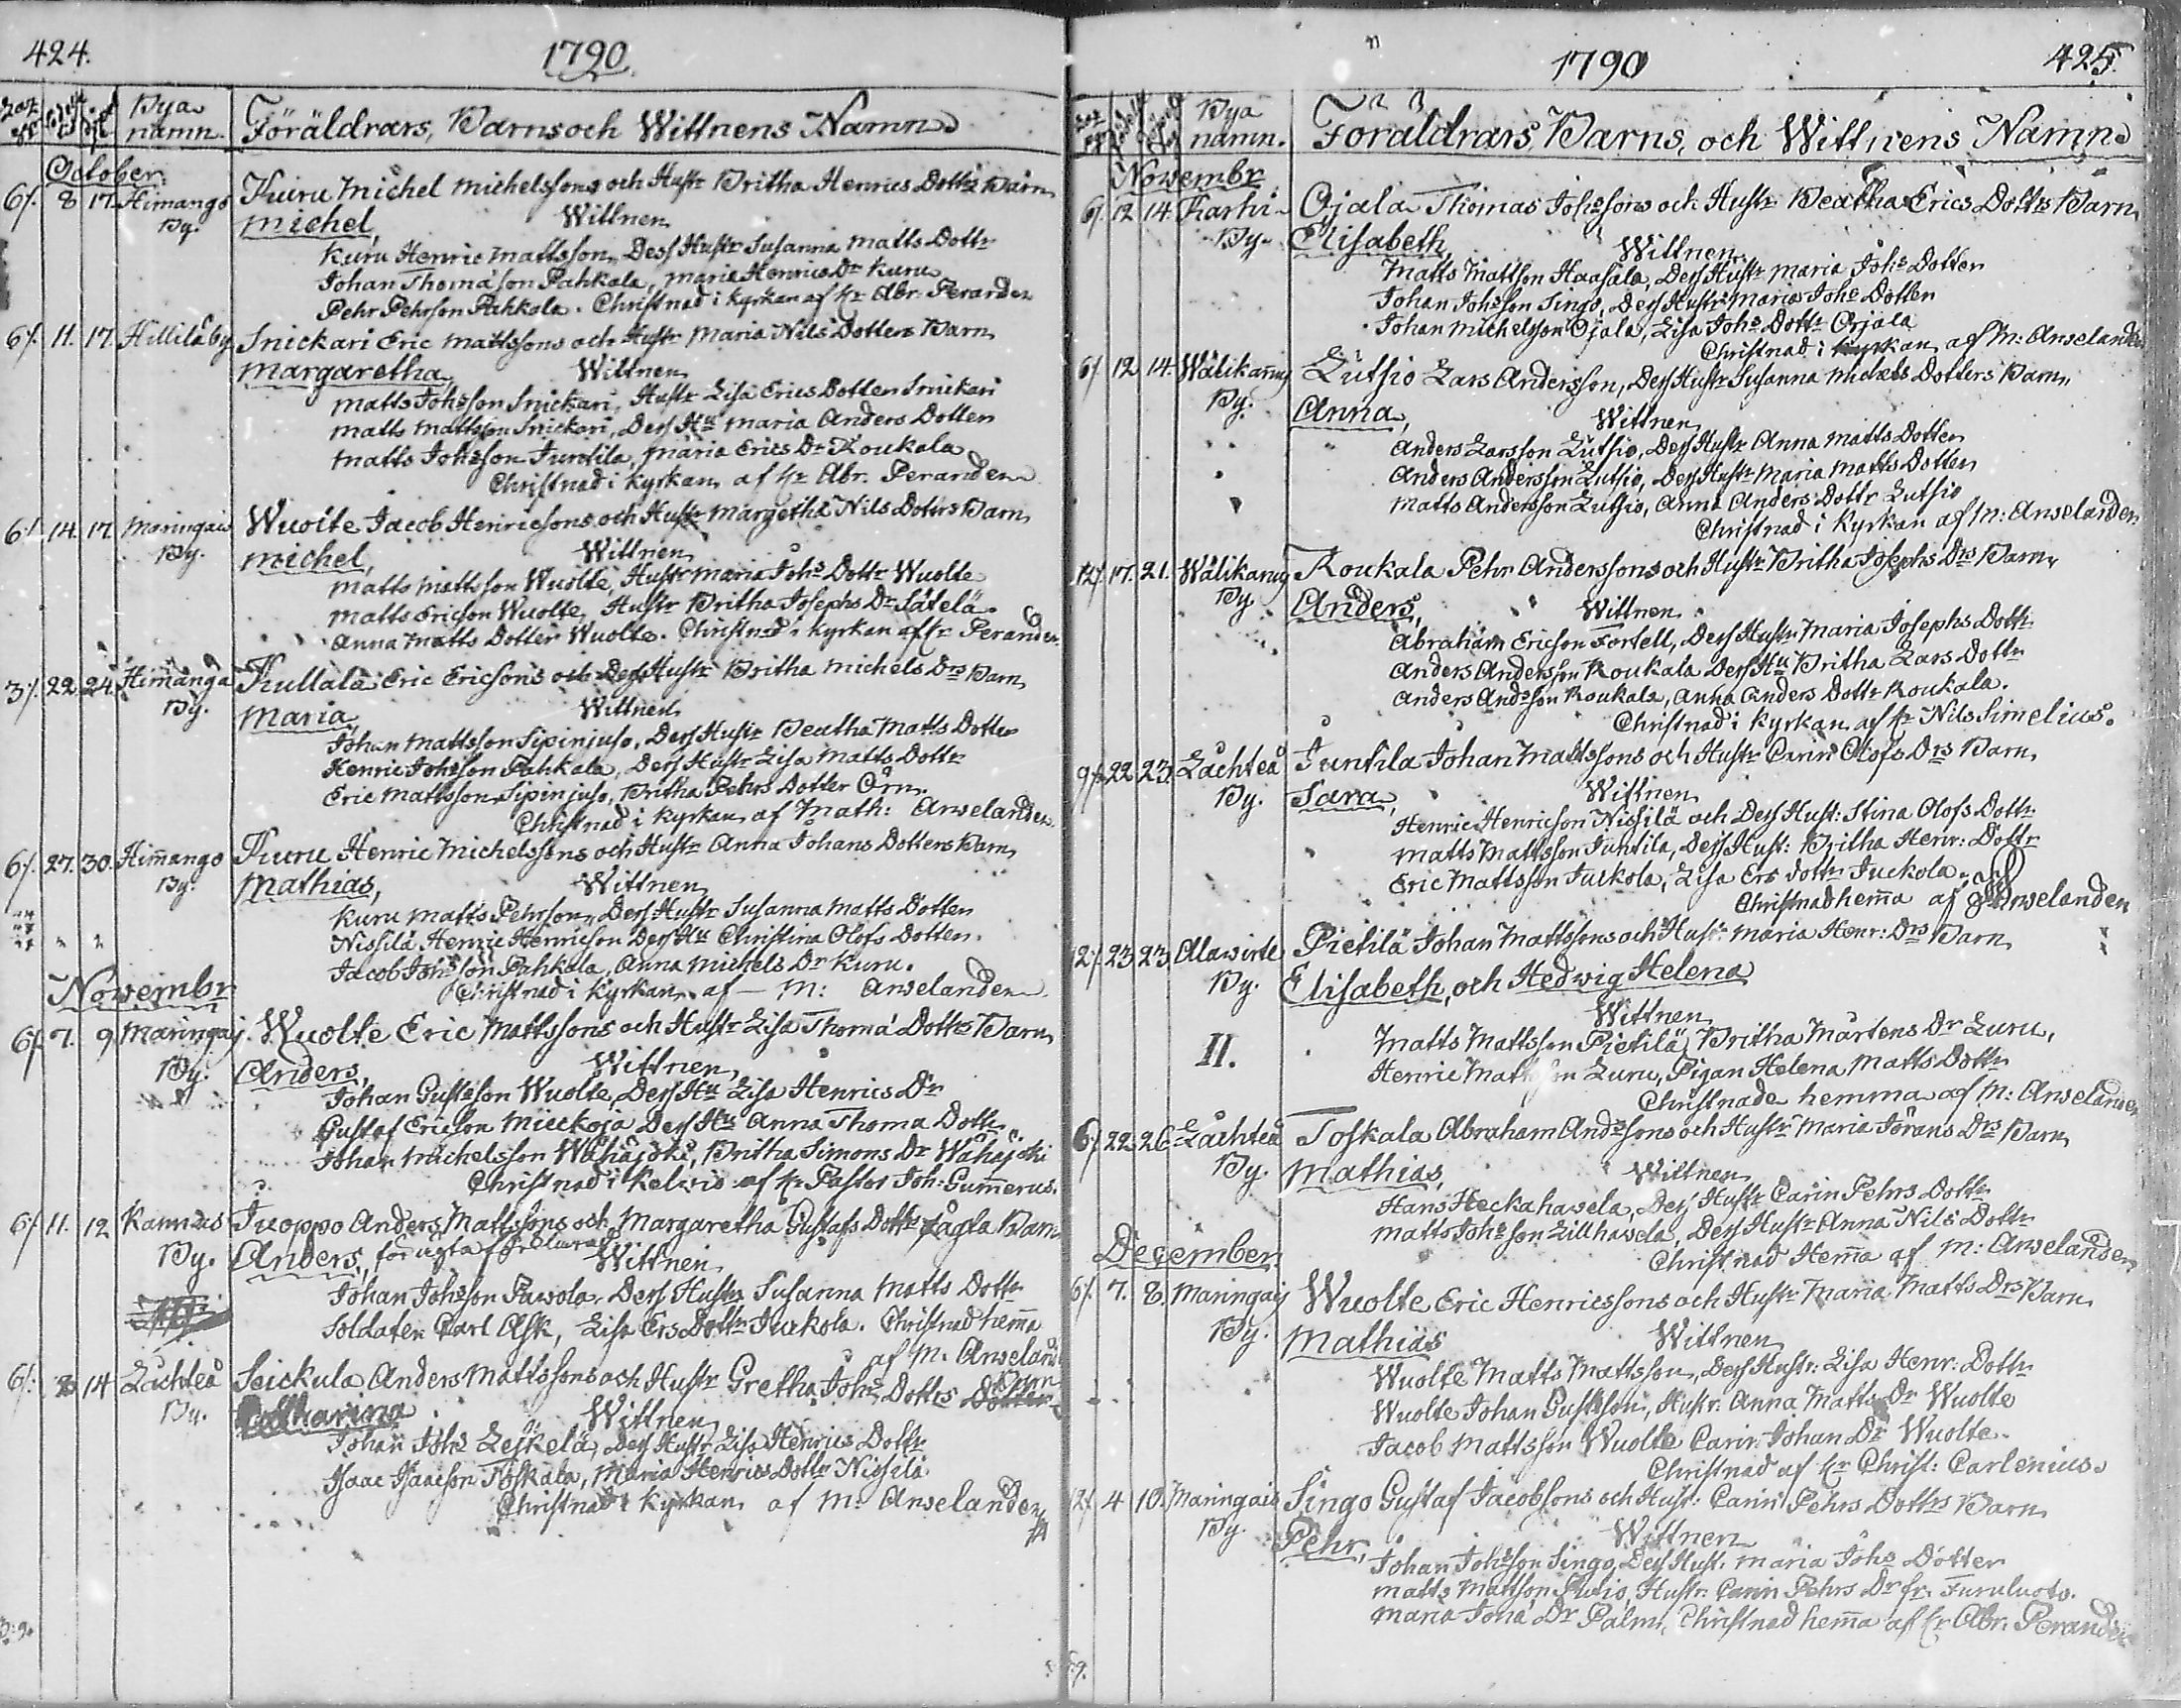 424.
1790.
Bya namn. Föräldrars, Barns och Wittnens Namn
October.
6/. 8 17. Himango Kuiru Michel Michelssons och Hustr Britha Henrics Dottrs Barn
By. Michel, Wittnen
Kuru Henric Mattsson, Dess Hustr Susanna Matts Dottr
Johan Thomasson Pahkala, Maria Henrics Dr Kuru
Pehr Pehrson Pahkola. Christnad i kyrkan af Hr Abr: Peranden
6/. 11. 17. Hillilä by Snickari Eric Mattssons och Hustr Maria Nils Dotters Barn
Margaretha Wittnen
Matts Johsson Snickari, Hustr Lisa Erics Dotter Snickari
Matts Mattsson Snickari, Dess Hu Maria Anders Dotter
Matts Johsson Juntila, Maria Erics Dr Roukala
Christnad i kyrkan af Hr Abr. Peranden
6/. 14. 17. Maringais Wuolte Jacob Henricssons och Hustr Margetha Nils Doters Barn
By. Michel, Wittnen
Matts Mattsson Wuolte, Hustr Maria Johs Dottr Wuolte
Matts Ericson Wuolte, Hustr Britha Josephs Dr Sätelä.
Anna Matts Dotter Wuolte. Christnad i kyrkan af Hr Peranden.
3/. 22 24. Himanga Kullala Eric Ericsons och Dess Hustr Britha Michels Drs Barn
By. Maria Wittnen
Johan Mattsson Sipinjuso, Dess Hustr Beatha Matts Dotter
Henric Johsson Pahkala, Dess Hustr Lisa Matts Dottr
Eric Mattsson Sipinjuso, Britha Pehrs Dotter Örn.
Christnad i kyrkan af Math: Anselanden.
6/. 27. 30. Himango Kuru Henric Michelssons och Hustr Anna Johans Dotters Barn
By. Mathias, Wittnen
Kuru Matts Pehrson, Dess Hustr Susanna Matts Dotter
Nissilä Henric Henricson Dess Hu Christina Olofs Dotter.
Jacob Johsson Pahkala, Anna Michels Dr Kuru.
Christnad i kyrkan af M: Anselanden
Novembr
6/. 7. 9. Maringaij Wuolte Eric Mattssons och Hustr Lisa Thoma Dottrs Barn
By. Anders, Wittnen
Johan Gustsson Wuolte, Dess Hu Lisa Henrics Dr
Gustaf Ericson Mieckoja Dess Hu Anna Thoma Dottr
Johan Michelsson Wähäjoki, Britha Simons Dr Wähäjoki
Christnad i Kelvio af Hr Pastor Joh: Gummerus.
6/. 11. 12 Kannus Juoppo Anders Mattssons och Margaretha Gustafs Dottr Barn
By. Anders, Wittnen
Johan Johsson Pawola, Dess Hustr Susanna Matts Dottr
Soldaten Carl Ask, Lisa Ers Dottr Juckola. Christnad hemma
af M. Anseland
6/. 8 14 Lachteå Seickula Anders Mattssons och Hustr Gretha Johs Dottrs Barn
By. Catharina Wittnen
Johan Johs Leskelä, Dess Hustr Lisa Henrics Dottr
Isaac Isaacson Toskala, Maria Henrics Dottr Nissilä
Christnad i kyrkan af M: Anselanden
1790
425.
Bya namn. Föräldrars, Barns, och Wittnens Namn
Novembr
6/. 12 14 Karhi Ojala Thomas Johssons och Hustr Beatha Erics Dottrs Barn
By. Elisabeth, Wittnen
Matts Mattson Haasala, Dess Hustr Maria Johs Dotter
Johan Johsson Singo, Dess Hustr Maria Johs Dotter
Johan Michelsson Ojala, Lisa Johs Dottr Orjala
Christnad i kyrkan af M: Anselanden
6/ 12 14. Wälikanng Lutsio Lars Andersson, Dess Hustr Susanna Michels Dotters Barn
By. Anna, Wittnen
Anders Larsson Lutsio, Dess Hustr Anna Matts Dotter
Anders Andersson Lutsio, Dess Hustr Maria Matts Dotter
Matts Andersson Lutsio, Anna Anders Dottr Lutsio
Christnad i kyrkan af M: Anselanden
12/. 17. 21. Wälikanng Roukala Pehr Anderssons och Hustr Britha Josephs Drs Barn
By. Anders, Wittnen
Abraham Ericson Forsell, Dess Hustr Maria Josephs Dottr
Anders Andersson Roukala Dess Hu Britha Lars Dottr
Anders Andsson Roukala, Anna Anders Dottr Roukala.
Christnad i kyrkan af Hr Nils Simelius.
9/. 22 23. Lachteå Juntila Johan Mattssons och Hustr Carin Olofs Drs Barn
By. Sara, Wittnen
Henric Henricson Nissilä och Dess Hust: Stina Olofs Dottr
Matts Mattsson Juntila, Dess Hust: Britha Henr: Dottr
Eric Mattsson Juckola, Lisa Ers dottr Juckola.
Christnad hemma af Anselanden
12/. 23 23. Alawirte Pietilä Johan Mattssons och Hustr Maria Henr: Drs Barn
By. Elisabeth, och Hedwig Helena
Wittnen
II. Matts Mattsson Pietilä, Britha Mårtens Dr Luru,
Henric Mattsson Luru, Pigan Helena Matts Dottr
Christnade hemma af M: Anselanden
6/. 22 26 Lachteå Toskala Abraham Andssons och Hustr Maria Jörans Drs Barn
By. Mathias, Wittnen
Hans Heckahavela, Dess Hustr Carin Pehrs Dottr
Matts Johsson Lillhavela, Dess Hustr Anna Nils Dottr
Christnad Hemma af M: Anselanden
December.
6/. 7. 8. Maringaij Wuolte Eric Henricssons och Hustr Maria Matts Drs Barn
By. Mathias Wittnen
Wuolte Matts Mattsson, Dess Hustr: Lisa Henr: Dottr
Wuolte Johan Gustsson, Hustr. Anna Matts Dr Wuolte
Jacob Mattsson Wuolte Carin Johan Dr Wuolte.
Christnad af Hr Christ: Carlenius.
12/. 4 10. Maringais Singo Gustaf Jacobsons och Hust: Carin Pehrs Dottrs Barn
By. Pehr, Wittnen
Johan Johsson Singo, Dess Hust: Maria Johs Dotter
Matts Mattson Hustr: Carin Pehrs Dr fr. Furuluoto.
Maria Jona Dr Palm, Christnad hemma af Hr Abr. Peranden